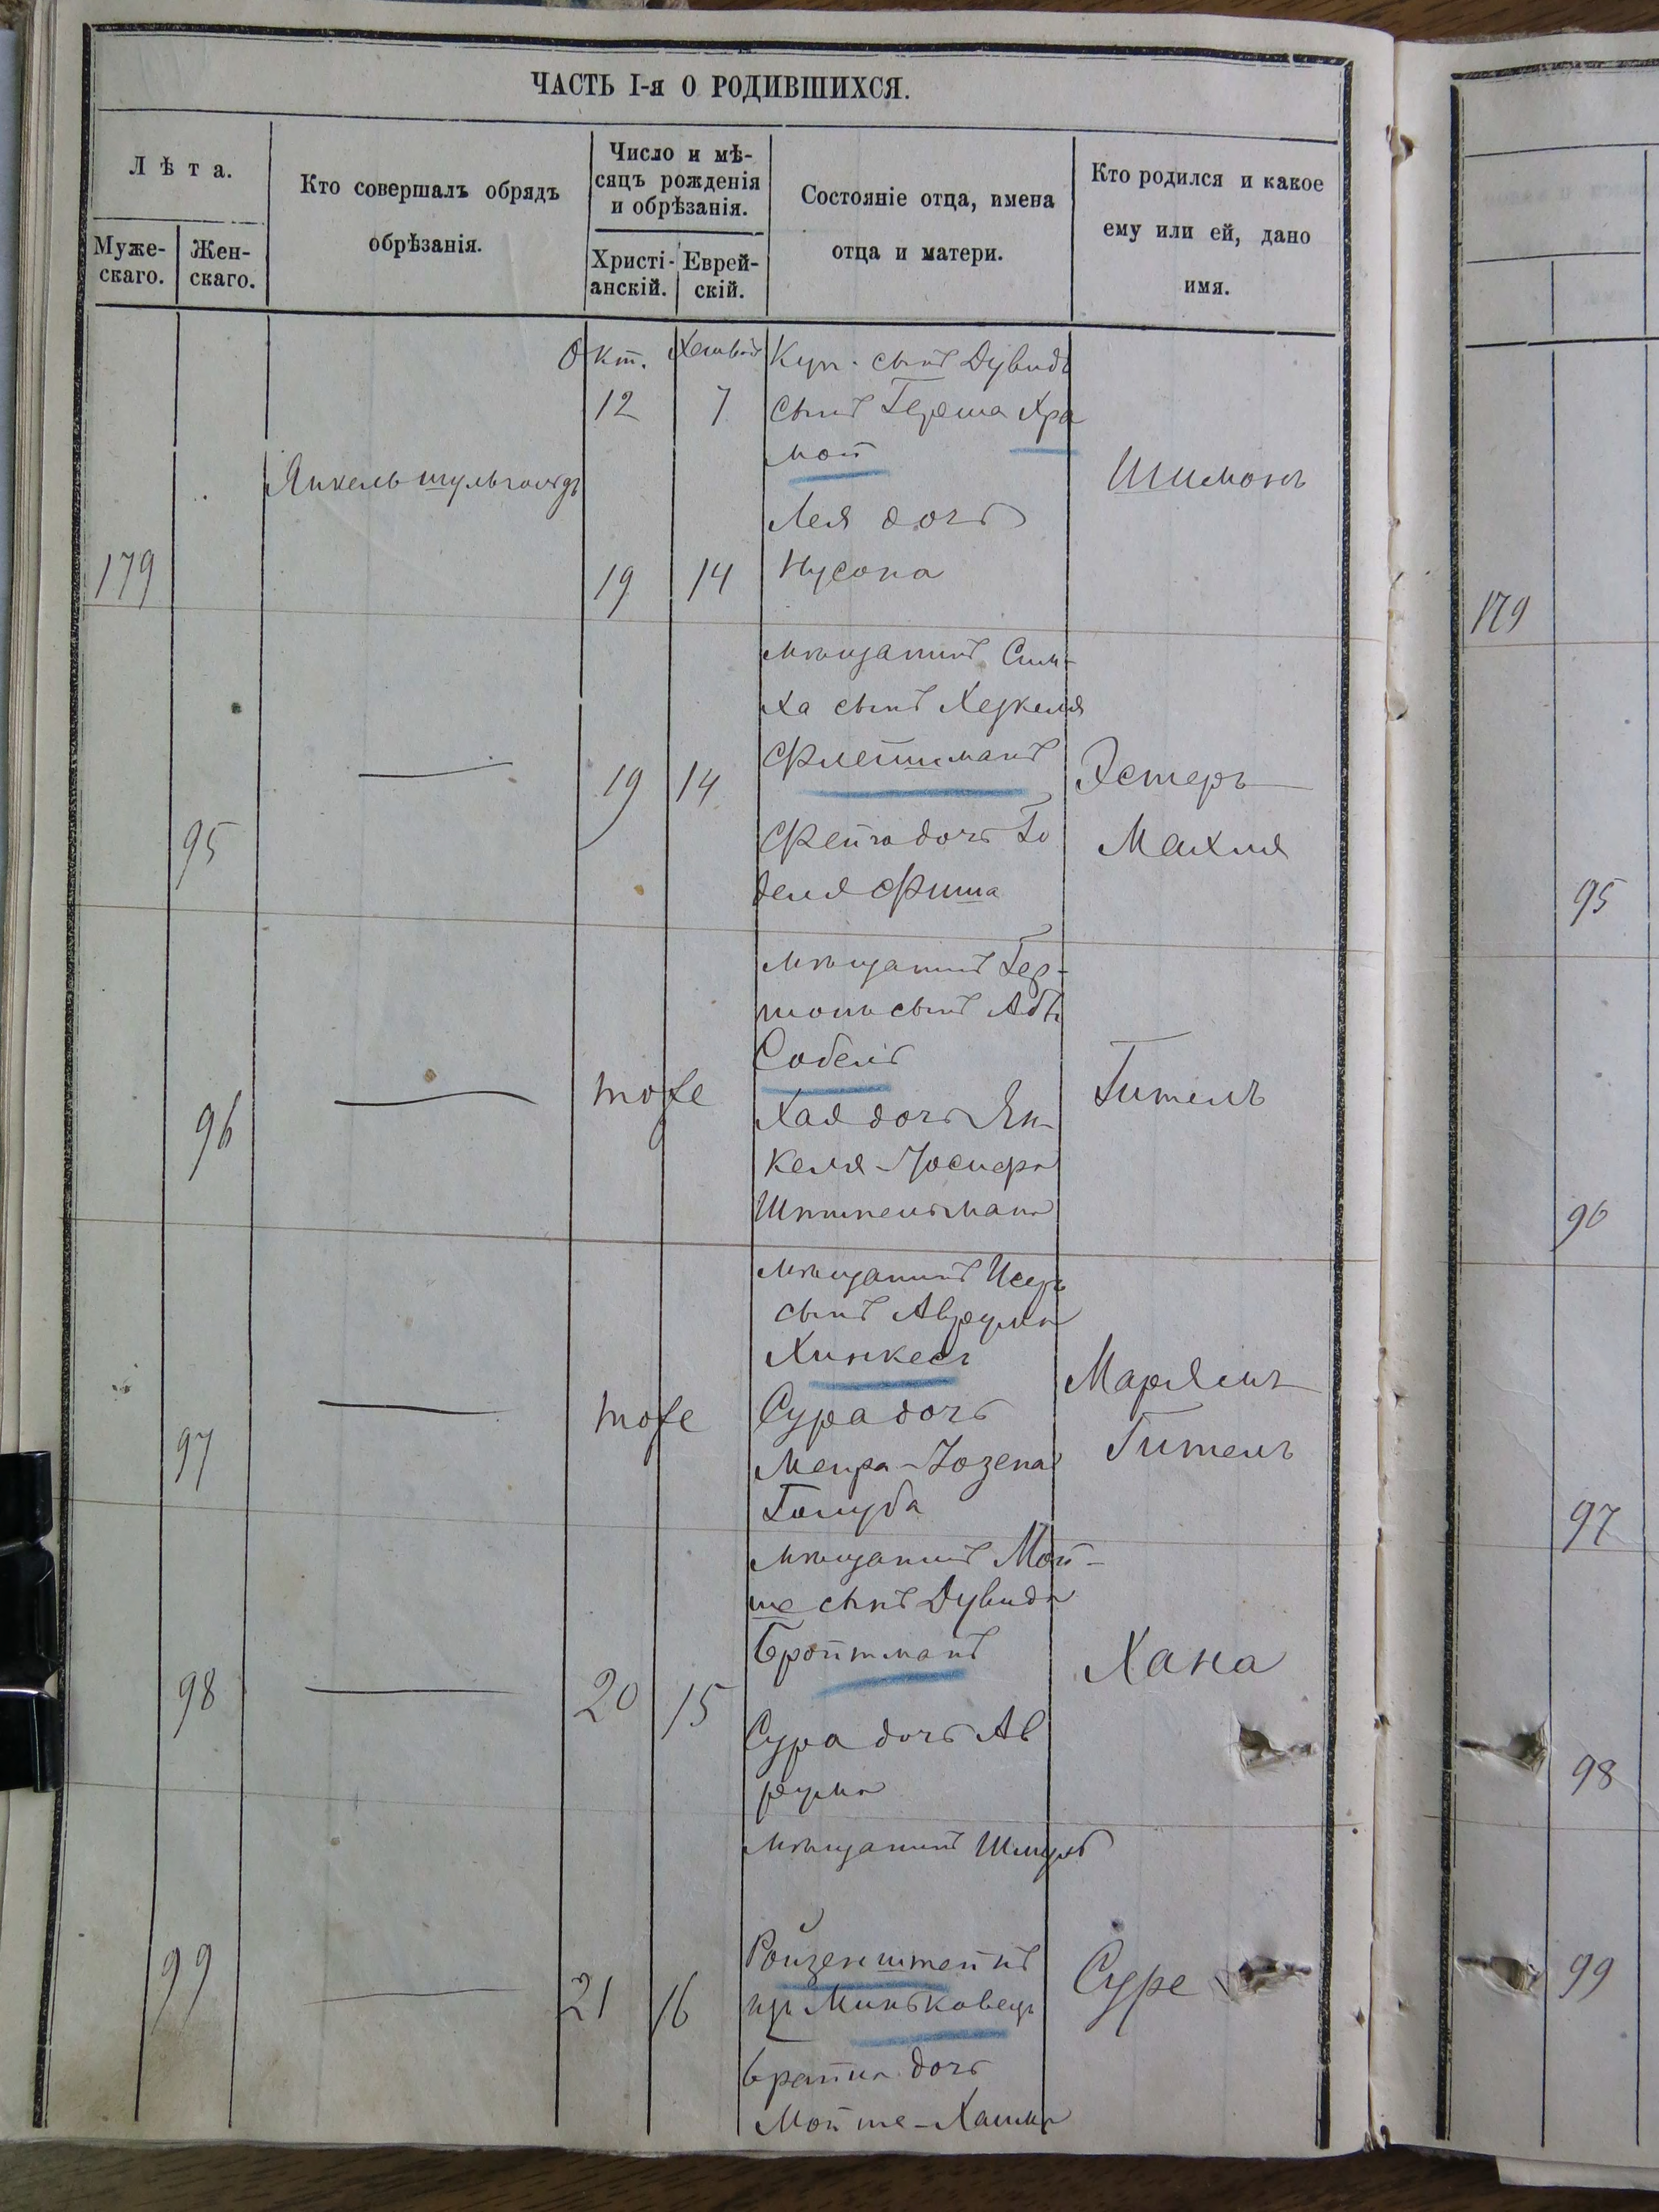 ЧАСТЬ I-я О РОДИВШИХСЯ.
Лѣта.
Муже-
скаго.
Жен-
скаго.
Кто совершалъ обрядъ
обрѣзанія.
Число и мѣ-
сяцъ рожденія
и обрѣзанія.
Христі-
анскій.
Еврей-
скій.
Состояніе отца, имена
отца и матери.
Кто родился и какое
ему или ей, дано
имя.
179
Янкель
Окт.
12 7
19 14
Куп. сынъ Дувидъ
сынъ Герша Хра
мой
Лея дочь
Нусона
Шимонъ
95
19 14
мѣщанинъ Сим-
ха сынъ Хезкеля
Флейшманъ
Фейга дочь Го
деля Фиша
Эстеръ
Махля
96
тоже
мѣщанинъ Гер-
шонъ сынъ Абы
Собель
Хая дочь Ян-
келя-Іосифа
Гитель
97
тоже
мѣщанинъ
сынъ Аврума
Хинкесъ
Сура дочь
Меира-Іозепа
Голуба
Марямъ
Гитель
98
20 15
мѣщанинъ Мой-
ше сынъ Дувида
Бройтманъ
Сура дочь Ав
рума
Хана
99
21 16
мѣщанинъ Шмуль
Ройзенштейнъ
изъ Миньковецъ
дочь
Мойше-Хаима
Суре
179
95
96
97
98
99